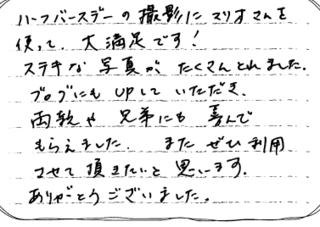 ハーフバースデーの撮影にマリオさんを
使って、大満足です！
ステキな写真が、たくさんとれました。
ブログにもUPしていただき、
両親や兄弟にも喜んで
もらえました。またぜひ利用
させて頂きたいと思います。
ありがとうございました。